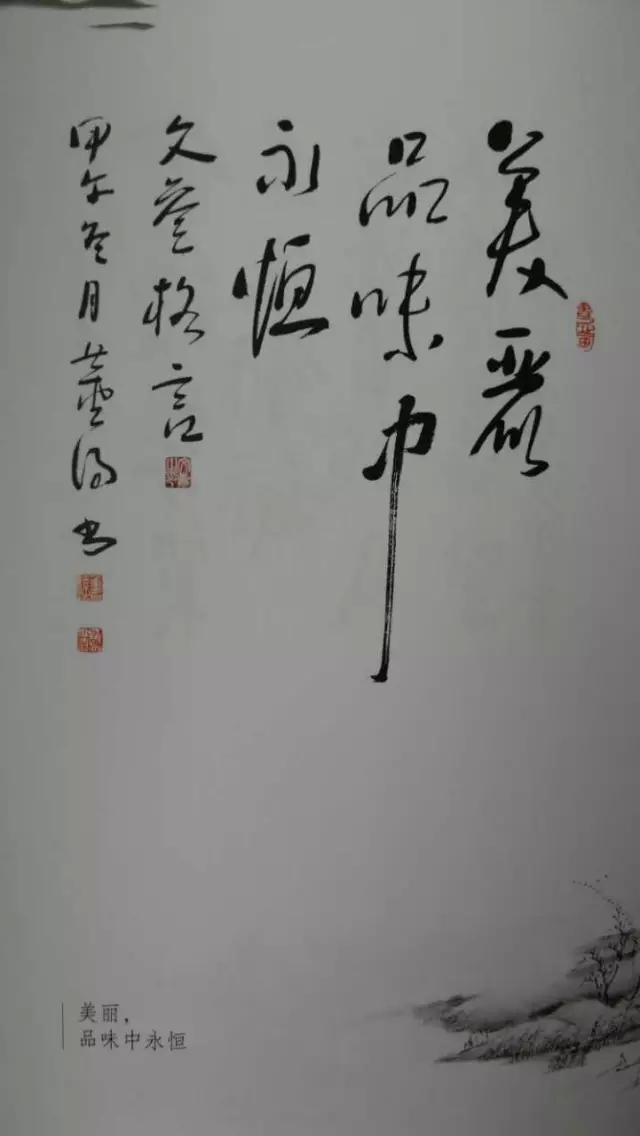 美麗
品味中
永恒
文誉格言
甲午冬月 书
美丽，
品味中永恒